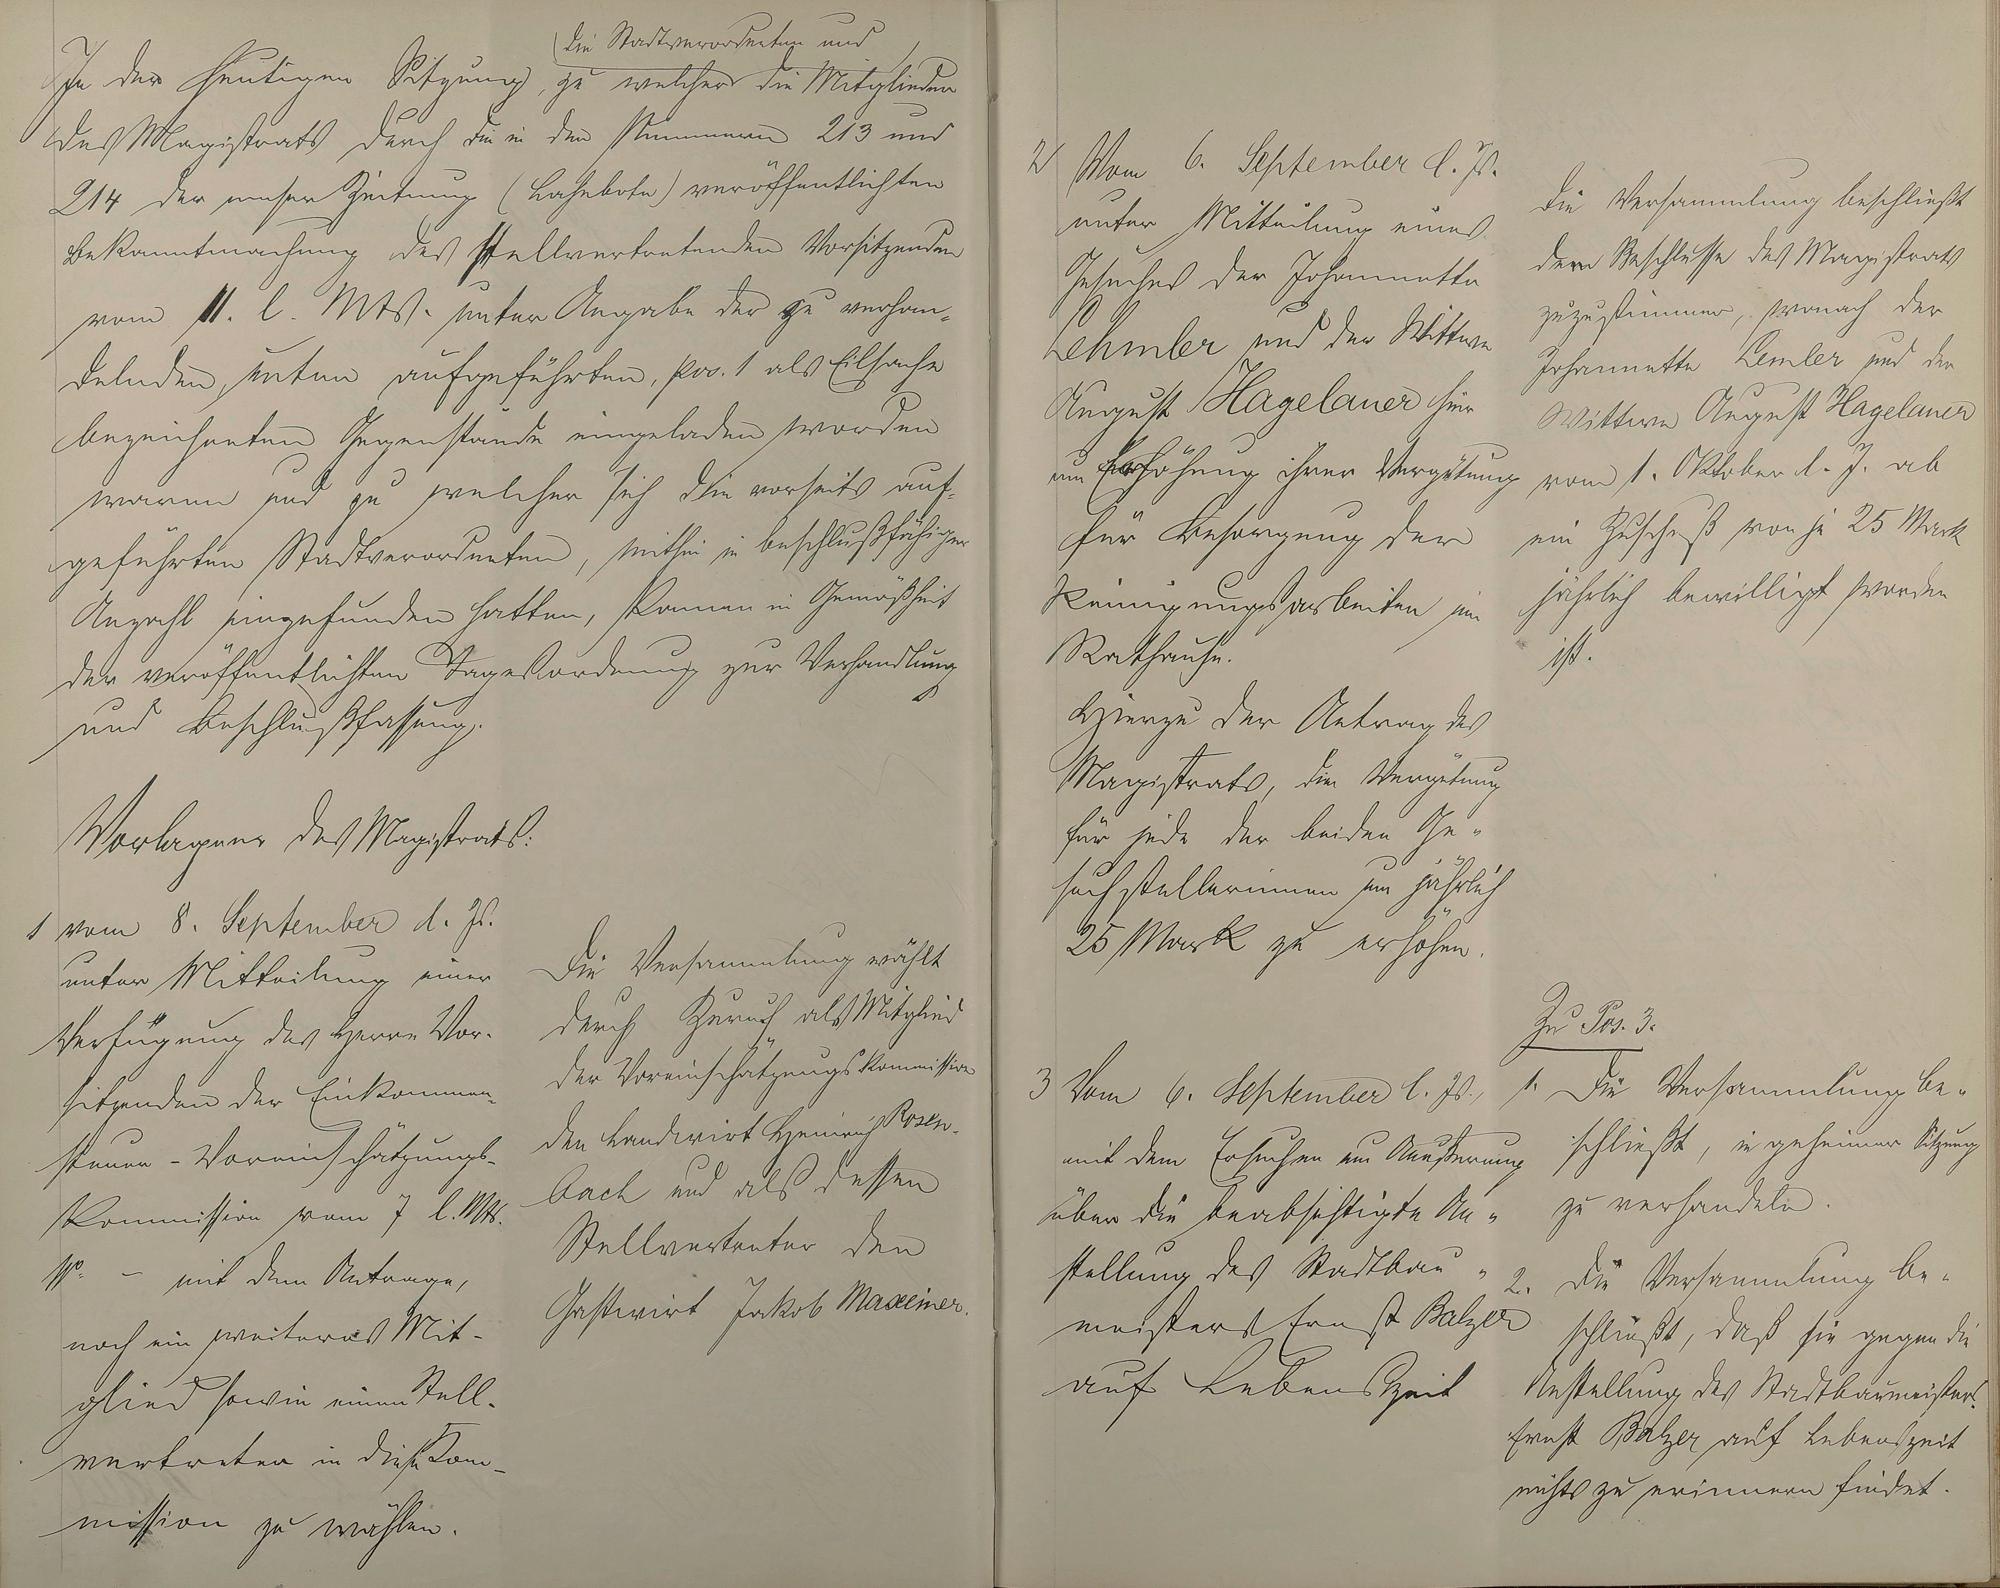 die Stadtverordneten und
In der heutigen Sitzung, zu welcher die Mitglieder
des Magistrats durch die in den Nummern 213 und
214 der emser Zeitung (Lahnbote) veröffentlichten
Bekanntmachung des stellvertretenden Vorsitzenden
vom 11. l. Mts. unter Angabe der zu verhan-
delnden, unten aufgeführten, pos. 1 als Eilsache
bezeichneten Gegenstände eingeladen worden
waren und zu welcher sich die vorseits auf-
geführten Stadtverordneten, mithin in beschlußfähiger
Anzahl eingefunden hatten, kamen in Gemäßheit
der veröffentlichten Tagesordnung zur Verhandlung
und Beschlußfassung.
Vorlagen des Magistrats:
1 vom 8. September d. Js.
unter Mitteilung einer
Verfügung des Herrn Vor-
sitzenden der Einkommen-
steuer-Voreinschätzungs-
Kommission vom 7 l. Mts.
No. – mit dem Antrage,
noch ein weiteres Mit-
glied sowie einen Stell-
vertreter in diese Kom-
mission zu wählen.
Die Versammlung wählt
durch Zuruf als Mitglied
der Voreinschätzungskommission
den Landwirt Heinrich Rosen-
bach und als dessen
Stellvertreter den
Gastwirt Jakob Maxeiner.
2 Vom 6. September l. Js.
unter Mitteilung eines
Gesuches der Johannette
Lehmler und der Wittwe
August Hagelauer hier
um Erhöhung ihrer Vergütung
für Besorgung der
Reinigungsarbeiten im
Rathause.
Hierzu der Antrag des
Magistrats, die Vergütung
für jede der beiden Ge-
suchstellerinnen um jährlich
25 Mark zu erhöhen.
Die Versammlung beschließt
dem Beschlusse des Magistrats
zuzustimmen, wonach der
Johannette Lemler und der
Wittwe August Hagelauer
vom 1. Oktober d. J. ab
ein Zuschuß von je 25 Mark
jährlich bewilligt worden
ist.
3 Vom 6. September l. Js.,
mit dem Ersuchen um Aeußerung
über die beabsichtigte An-
stellung des Stadtbau-
meisters Ernst Balzer
auf Lebenszeit
Zu Pos. 3.
1. Die Versammlung be-
schließt, in geheimer Sitzung
zu verhandeln.
2. Die Versammlung be-
schließt, daß sie gegen die
Anstellung des Stadtbaumeisters
Ernst Balzer auf Lebenszeit
nichts zu erinnern findet.